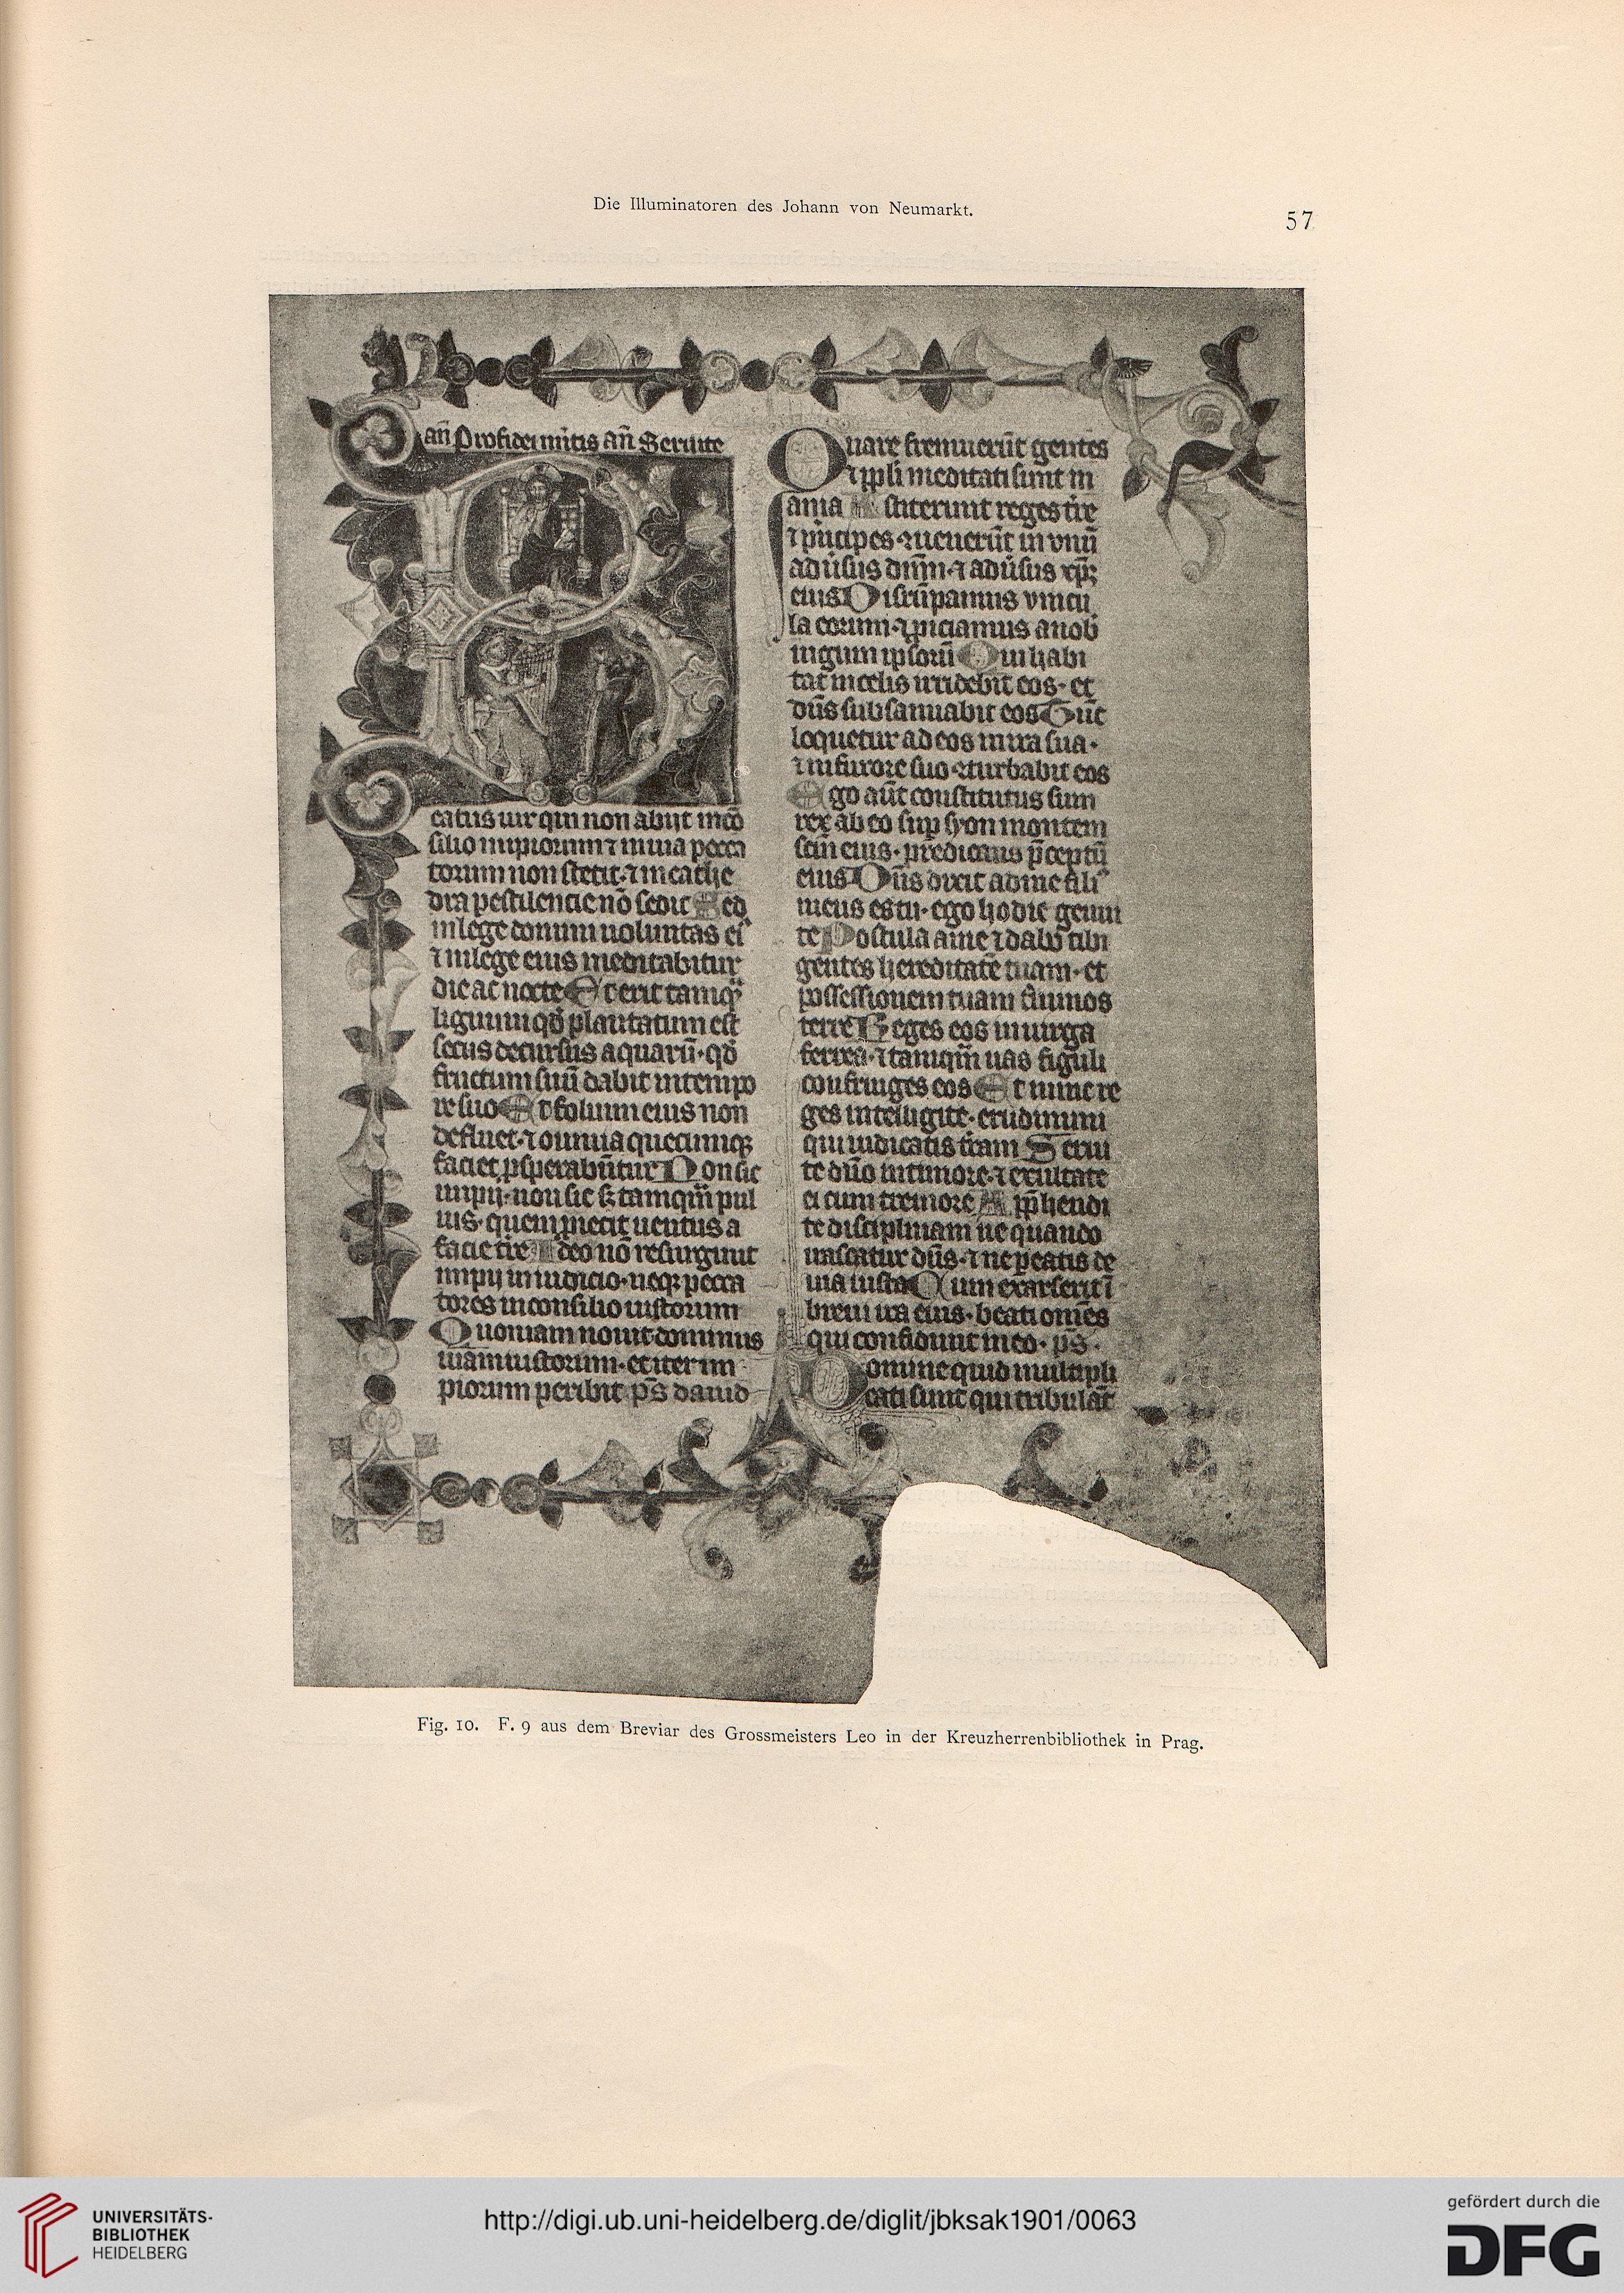 Die Illuminatoren des Johann von Neumarkt.
57
añ Profidei mitis añ Seruite
B
catus uir qui non abijt in cō
silio impiorum ⁊ in uia pecca
torum non stetit·⁊ in cathe
dra pestilencie nō sedit Sed
in lege domini uoluntas ei᷒
⁊ in lege eius meditabitur
die ac nocte Et erit tamq̄
lignum qd̄ plantatum est
secus decursus aquarū·qd̄
fructum suū dabit in tempo
re suo Et folium eius non
defluet·⁊ omnia quecumqꝫ
faciet ꝓsperabūtur Non sic
impij·non sic sꝫ tamqm̄ pul
uis·quem ꝓiecit uentus a
facie tr̄e Ideo nō resurgunt
impij in iudicio·neqꝫ pecca
tores in consilio iustorum
Quoniam nouit dominus
uiam iustorum·et iter im
piorum peribit p̄s dauid
Quare fremuerūt gentes
⁊ ppl̄i meditati sunt in
ania Astiterunt reges tr̄e
⁊ pͥncipes·ꝯuenerūt in vnū
aduͥsus dn̄m·⁊ aduͥsus xp̄ꝫ
eius Disrūpamus vincu
la eorum·⁊ ꝓiciamus a nob̄
iugum ipsorū Qui habi
tat in celis irridebit eos·et
dn̄s subsannabit eos Tūc
loquetur ad eos in ira sua·
⁊ in furore suo ꝯturbabit eos
Ego aūt constitutus sum
rex ab eo suꝑ syon montem
scm̄ eius·predicans p̄ceptū
eius Dn̄s dixit ad me fili᷒
meus es tu·ego hodie genui
te Postula a me ⁊ dabo tibi
gentes hereditatē tuam·et
possessionem tuam t̄minos
terre Reges eos in uirga
ferrea·⁊ tamqm̄ uas figuli
confringes eos Et nunc re
ges intelligite·erudimini
qui iudicatis t̄ram Serui
te dn̄o in timore·⁊ exultate
ei cum tremore Appͣhendi
te disciplinam ne quando
irascatur dn̄s·⁊ ne ꝑeatis de
uia iusta Cum exarserit ī
breui ira eius·beati omēs
qui confidunt in eo· p̄s·
Domine quid multipli
cati sunt qui tribulāt
Fig. 10. F. 9 aus dem Breviar des Grossmeisters Leo in der Kreuzherrenbibliothek in Prag.
UNIVERSITÄTS-
BIBLIOTHEK
HEIDELBERG
http://digi.ub.uni-heidelberg.de/diglit/jbksak1901/0063
gefördert durch die
DFG